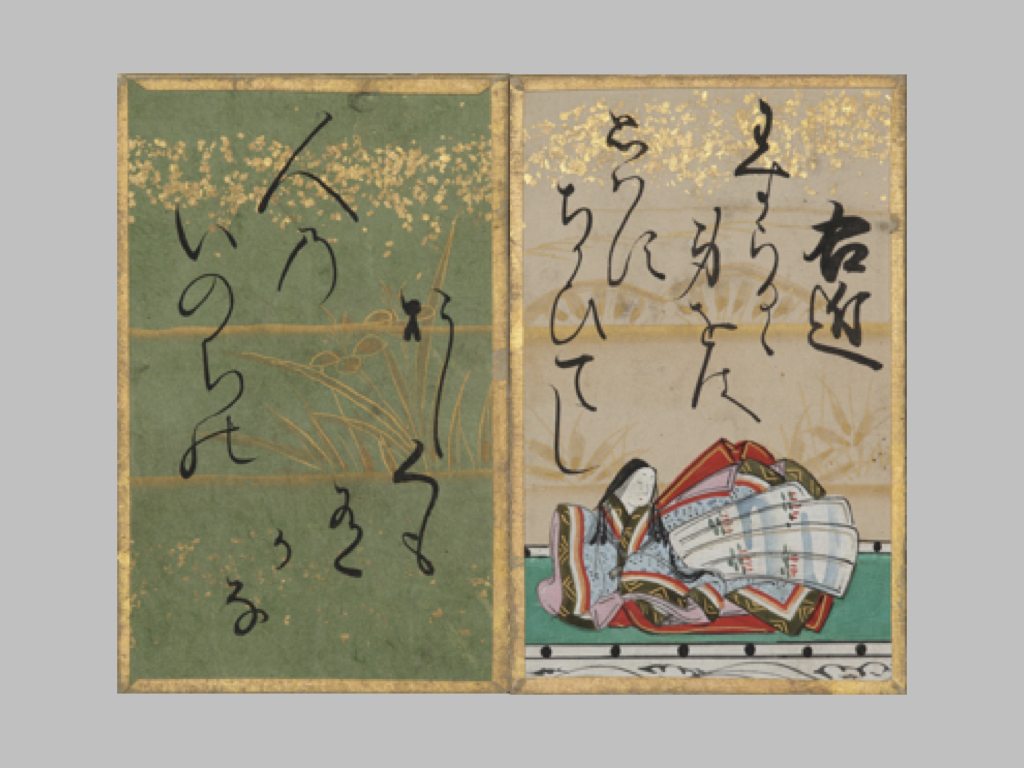 右近
わすらるゝ
身をは
思はす
ちかひてし
人の
いのちの
おしくも
ある
かな